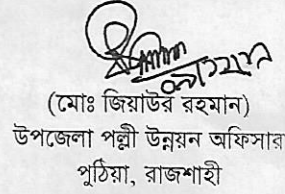 (মোঃ জিয়াউর রহমান)
উপজেলা পল্লী উন্নয়ন অফিসার
পুঠিয়া, রাজশাহী